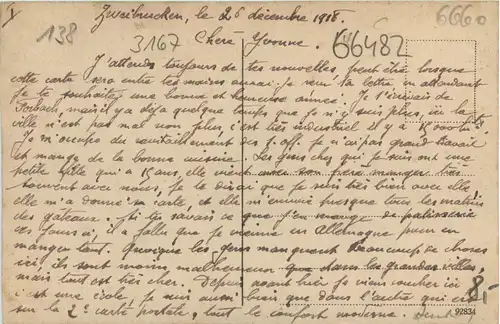 I
Zweibrucken, le 26 décembre 1918.
138
3167
66482
6660
Chere Yvonne.
J'attends toujours de tes nouvelles, peut être lorsque
cette carte sera entre tes mains aurai-je reçu ta lettre en attendant
je te souhaite une bonne et heureuse année. Je t'écrivais de
Forbach, mais il y a déjà quelque temps que je n'y suis plus, ici la
ville n'est pas mal non plus, c'est très industriel il y a 15000
Je m'occupe du ravitaillement des s/off. Je n'ai pas grand travail
et mange de la bonne cuisine. Les gens chez qui je suis ont une
petite fille qui a 15 ans, elle vient avec son père manger très
souvent avec nous, je te dirai que je suis très bien avec elle
elle m'a donné sa carte, et elle m'envoie presque tous les matins
des gâteaux. Ah! tu savais ce que j'en mange de patisserie
ces jours ci, il a fallu que je vienne en Allemagne pour en
manger tant. Quoique les gens manquent beaucoup de choses
ici, ils sont moins malheureux que dans les grandes villes,
mais tout est très cher. Depuis avant hier je viens coucher ici
c'est une école, je suis aussi bien que dans l'autre qui est
sur la 2e carte postale, tout le confort moderne.
8,-
92834